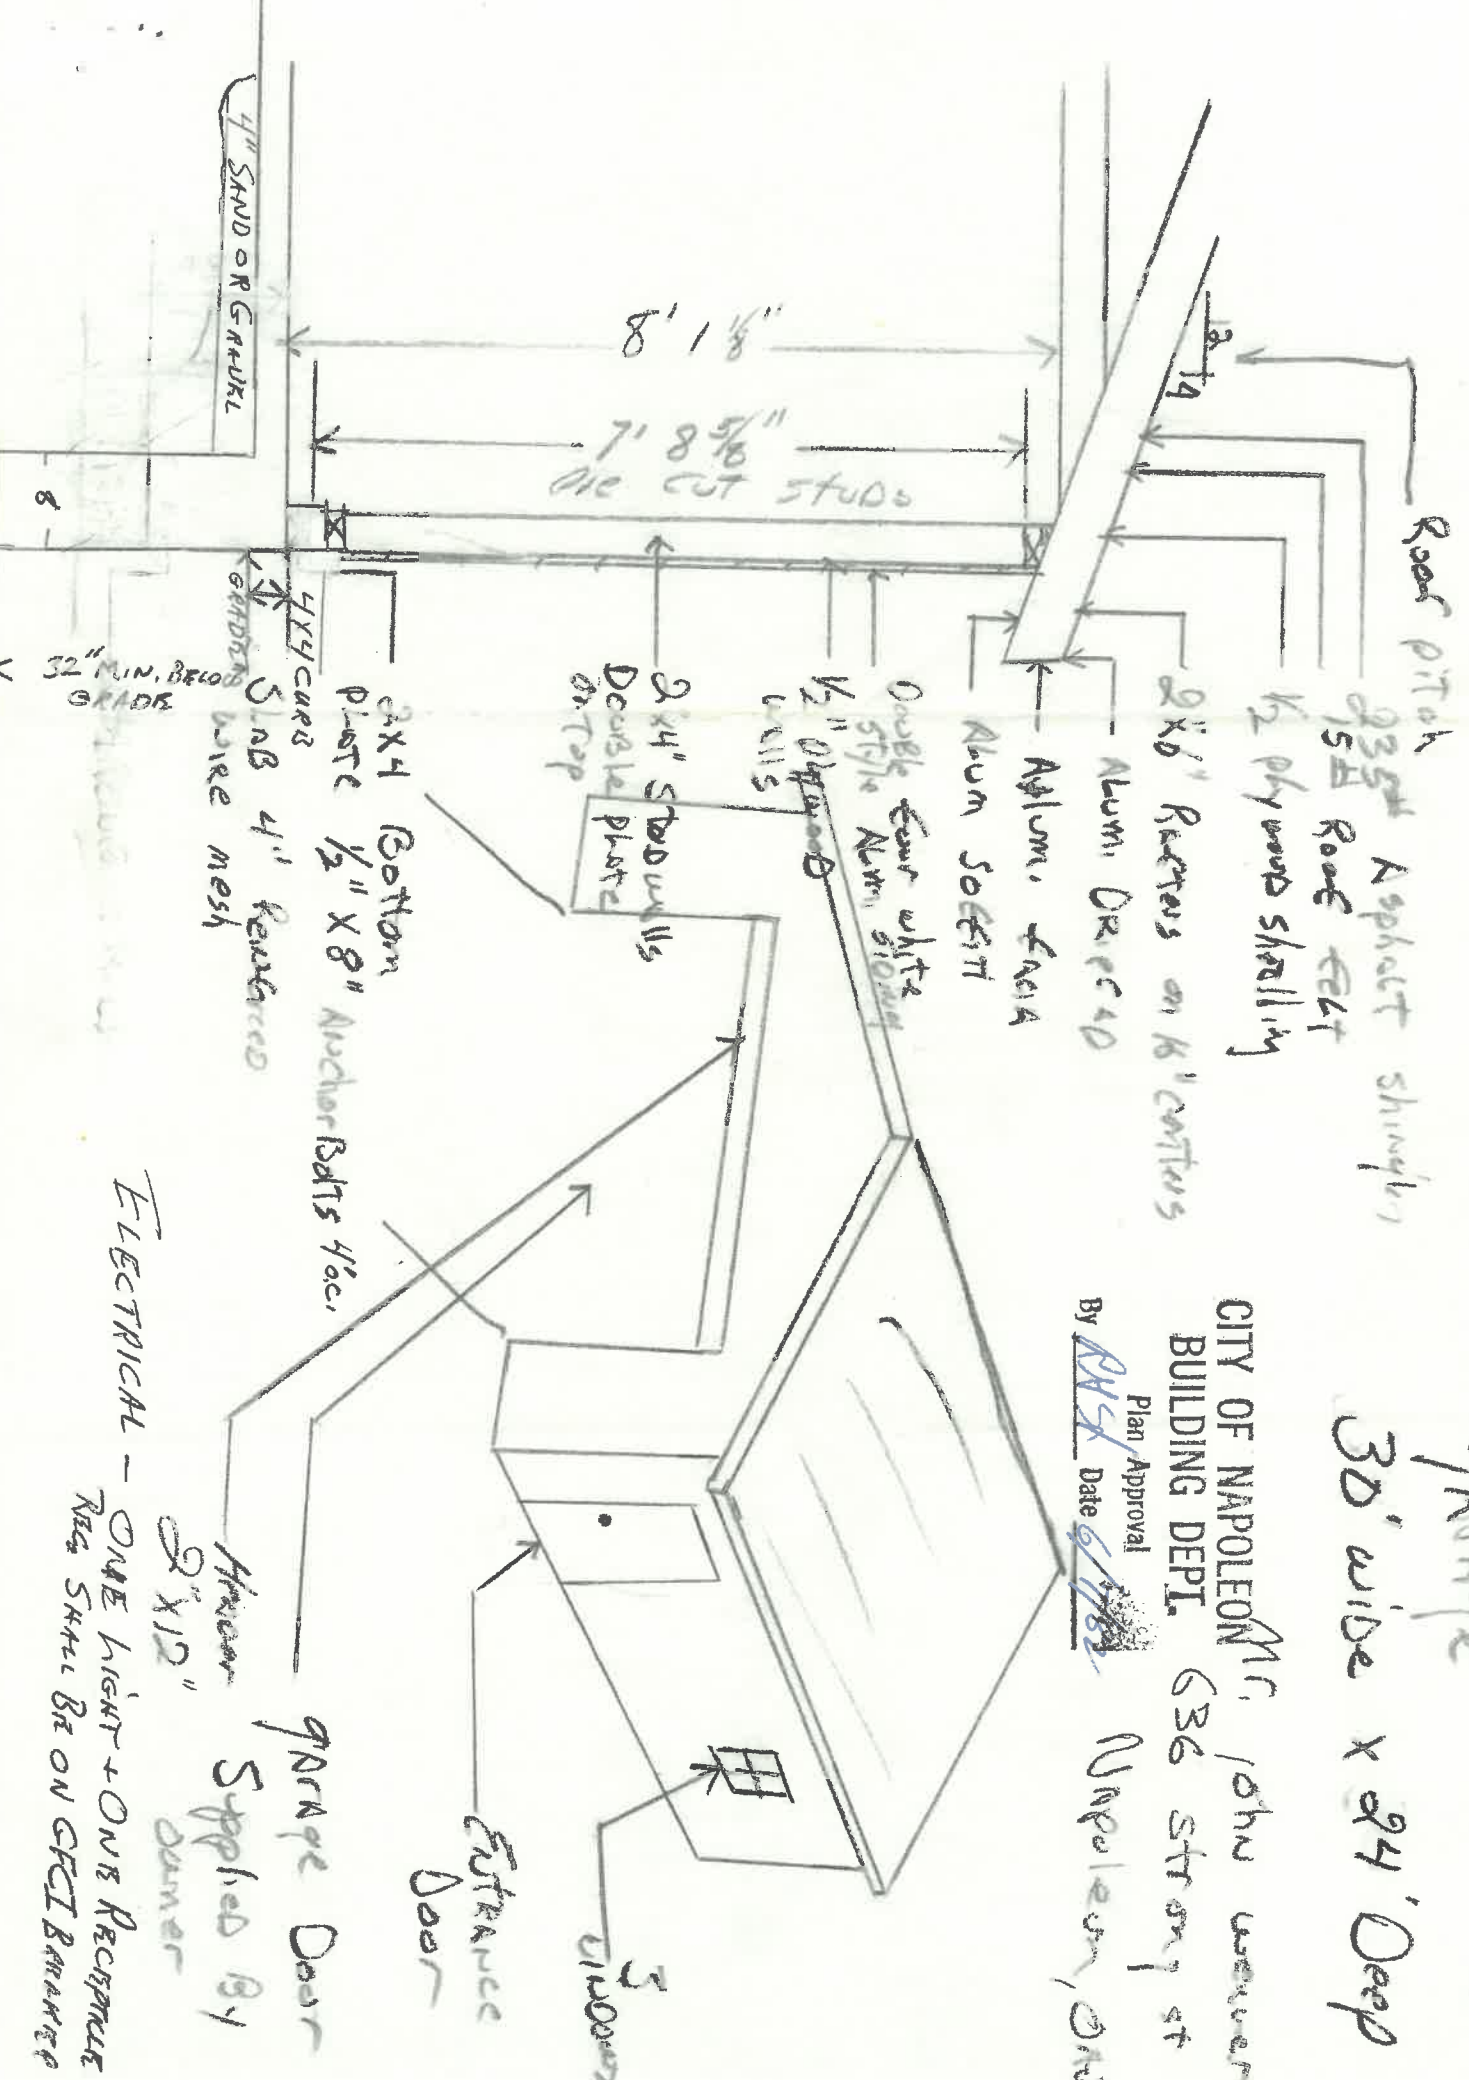 30' wide x 24' Deep
Mr. John weaver
636 strong st
Napoleon,
CITY OF NAPOLEON
BUILDING DEPT.
Plan Approval
By Date
Roof pitch
12
4
235# Asphalt shingles
15# Roof Felt
1/2 plywood sheating
2"x6" Rafters on 16" centers
Alum. Drip cap
Alum. Facia
Alum Soffit
Double Four white
style Alum. siding
1/2" plywood
walls
2"x4" stud walls
Double plate
on Top
2x4 Bottom
plate 1/2" x 8" Anchor Bolts 4' o.c.
4x4 CURB
SLAB 4" Reinforced
wire mesh
GRADE
32" MIN. BELOW
GRADE
8' 1 1/8"
7' 8 5/8"
pre cut studs
4" SAND OR GRAVEL
8
3
windows
Entrance
Door
garage Door
Header Supplied By
2"x12" owner
ELECTRICAL - ONE LIGHT + ONE RECEPTICLE
REC. SHALL BE ON GFCI BREAKER